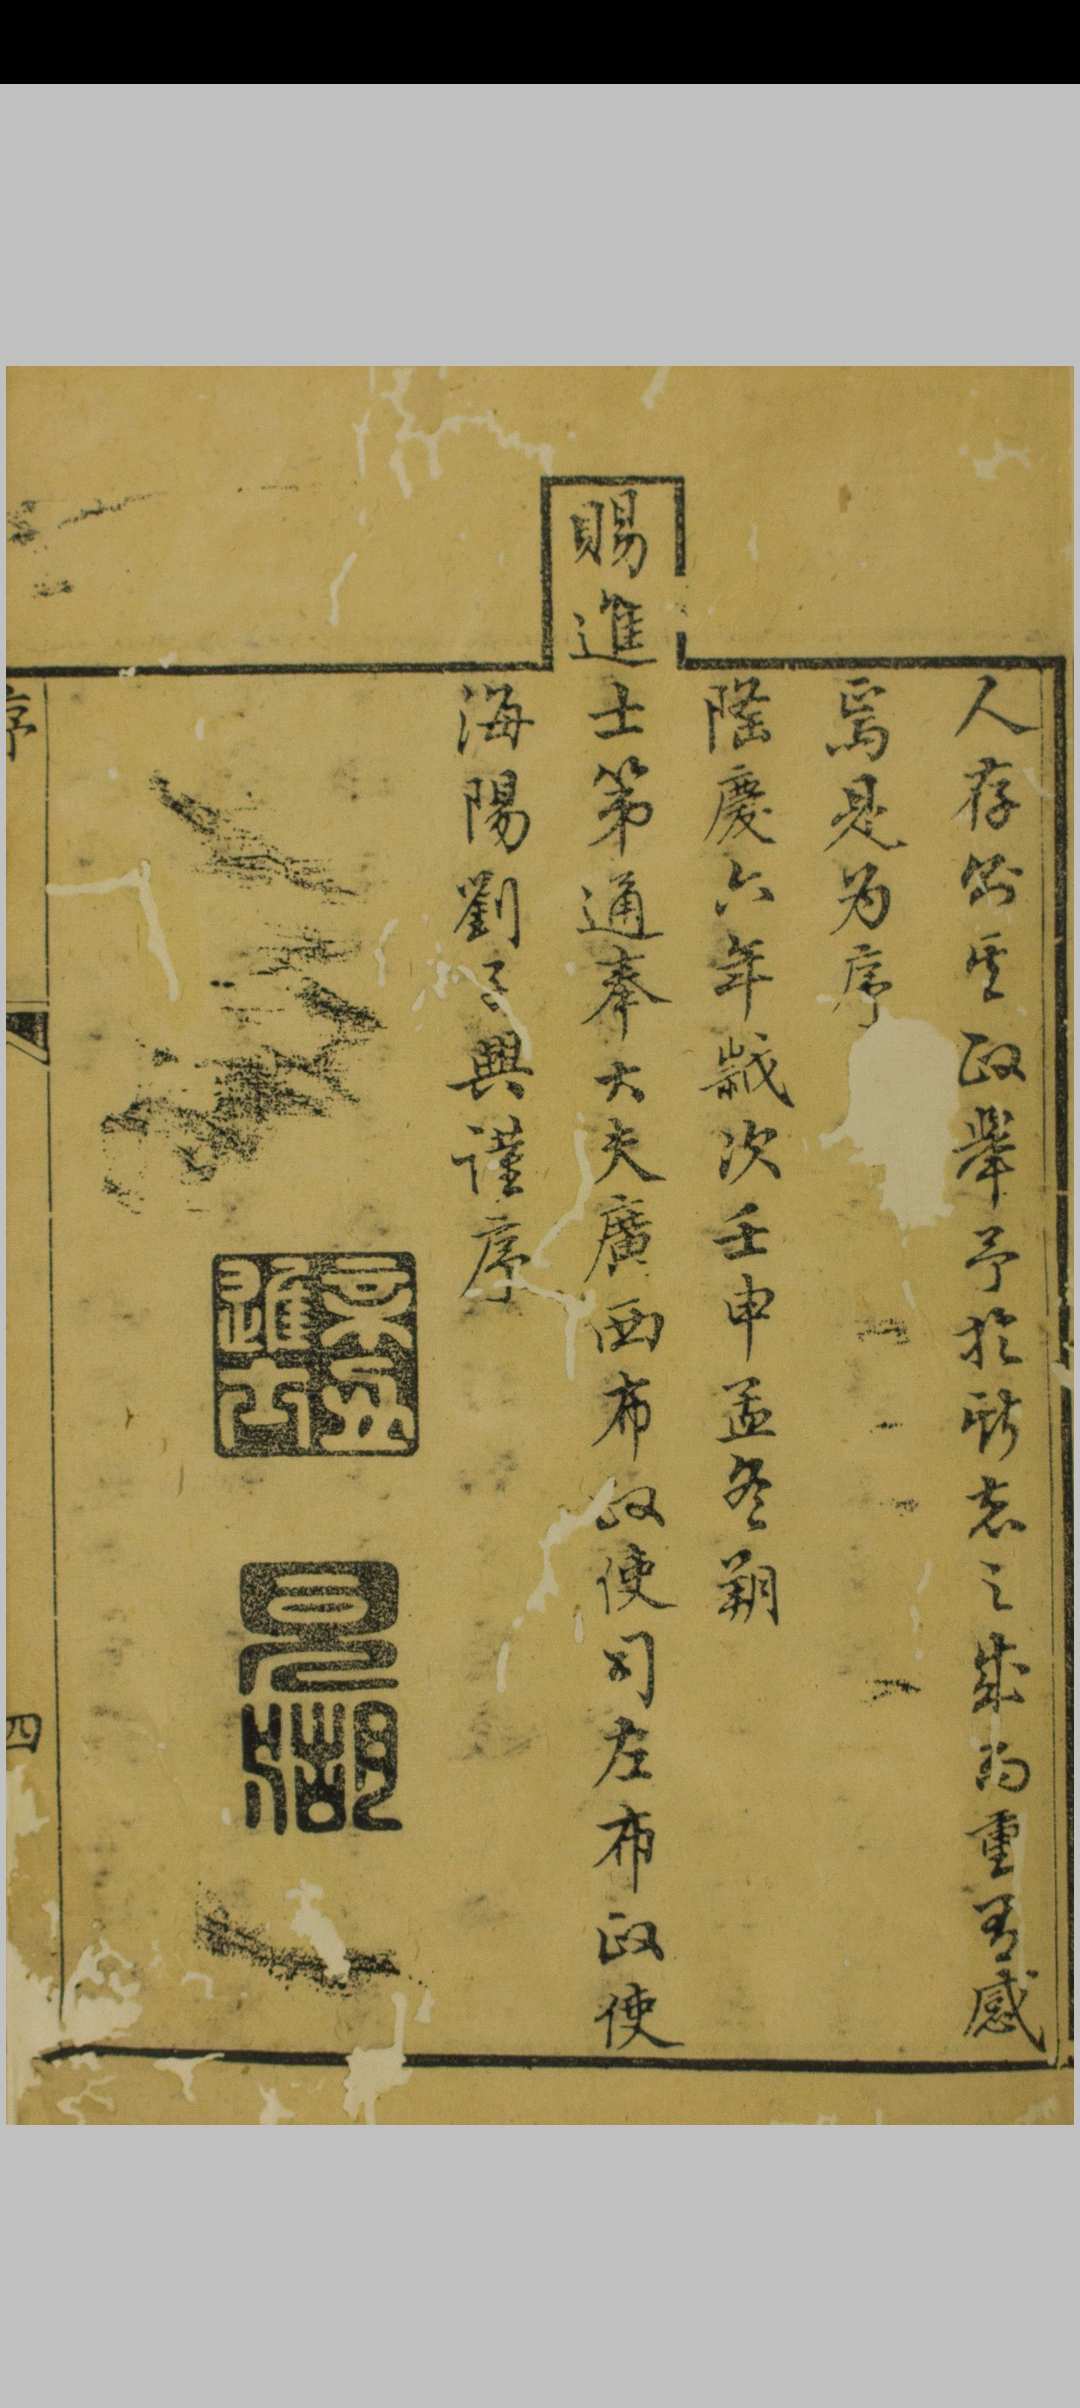 人存則其政舉予於斯志之成而重有感
焉是为序
隆慶六年歲次壬申孟冬朔
賜進士第通奉大夫廣西布政使司左布政使
海陽劉子興謹序
進士
見湖
序
四